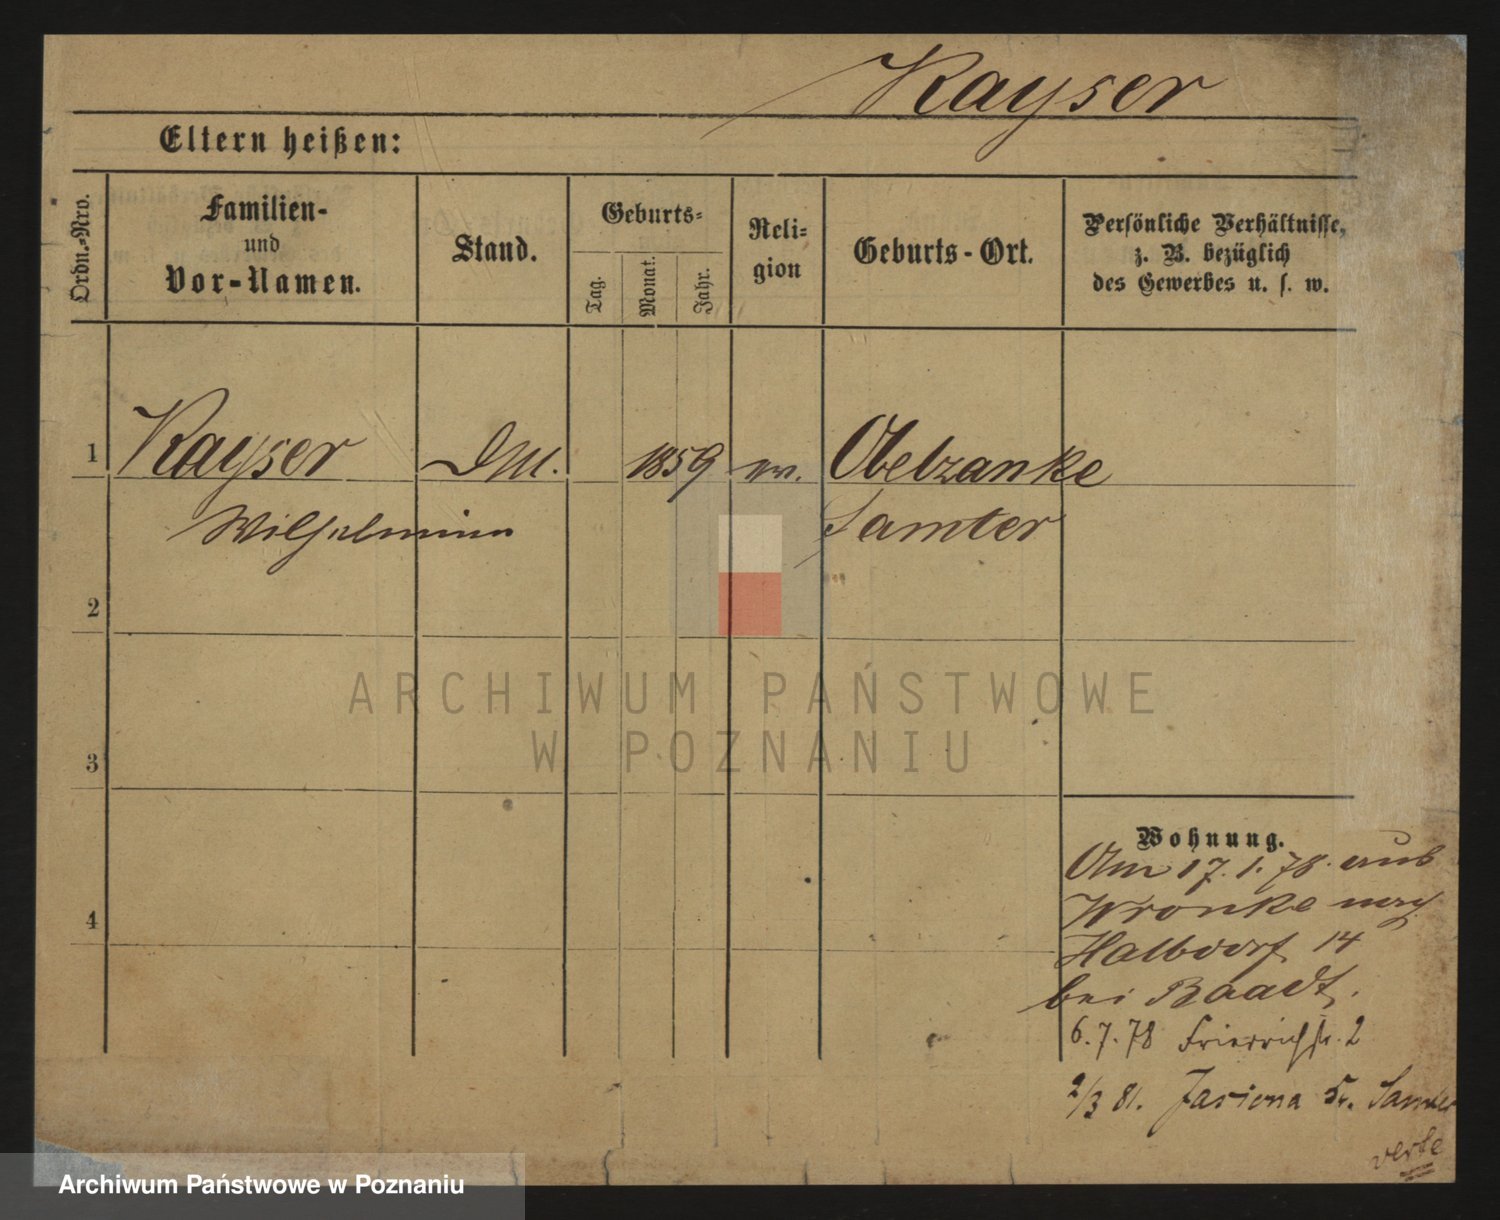 Kayser
Eltern heißen:
Ordn.=Nro.
Familien-
und
Vor-Namen.
Stand.
Geburts=
Tag.
Monat.
Jahr.
Reli=
gion
Geburts-Ort.
Persönliche Verhältnisse,
z. B. bezüglich
des Gewerbes u. s. w.
1 Kayser DM. 1859 ev. Obelzanke
Wilhelmine Samter
2
ARCHIWUM PAŃSTWOWE
W POZNANIU
3
Wohnung.
Am 17.1.78. aus
Wronke nach
Halbdorf 14
4
bei Baadt.
6.7.78 Friedrichstr. 2
2/3 81. Jasiona Kr. Samter
Archiwum Państwowe w Poznaniu